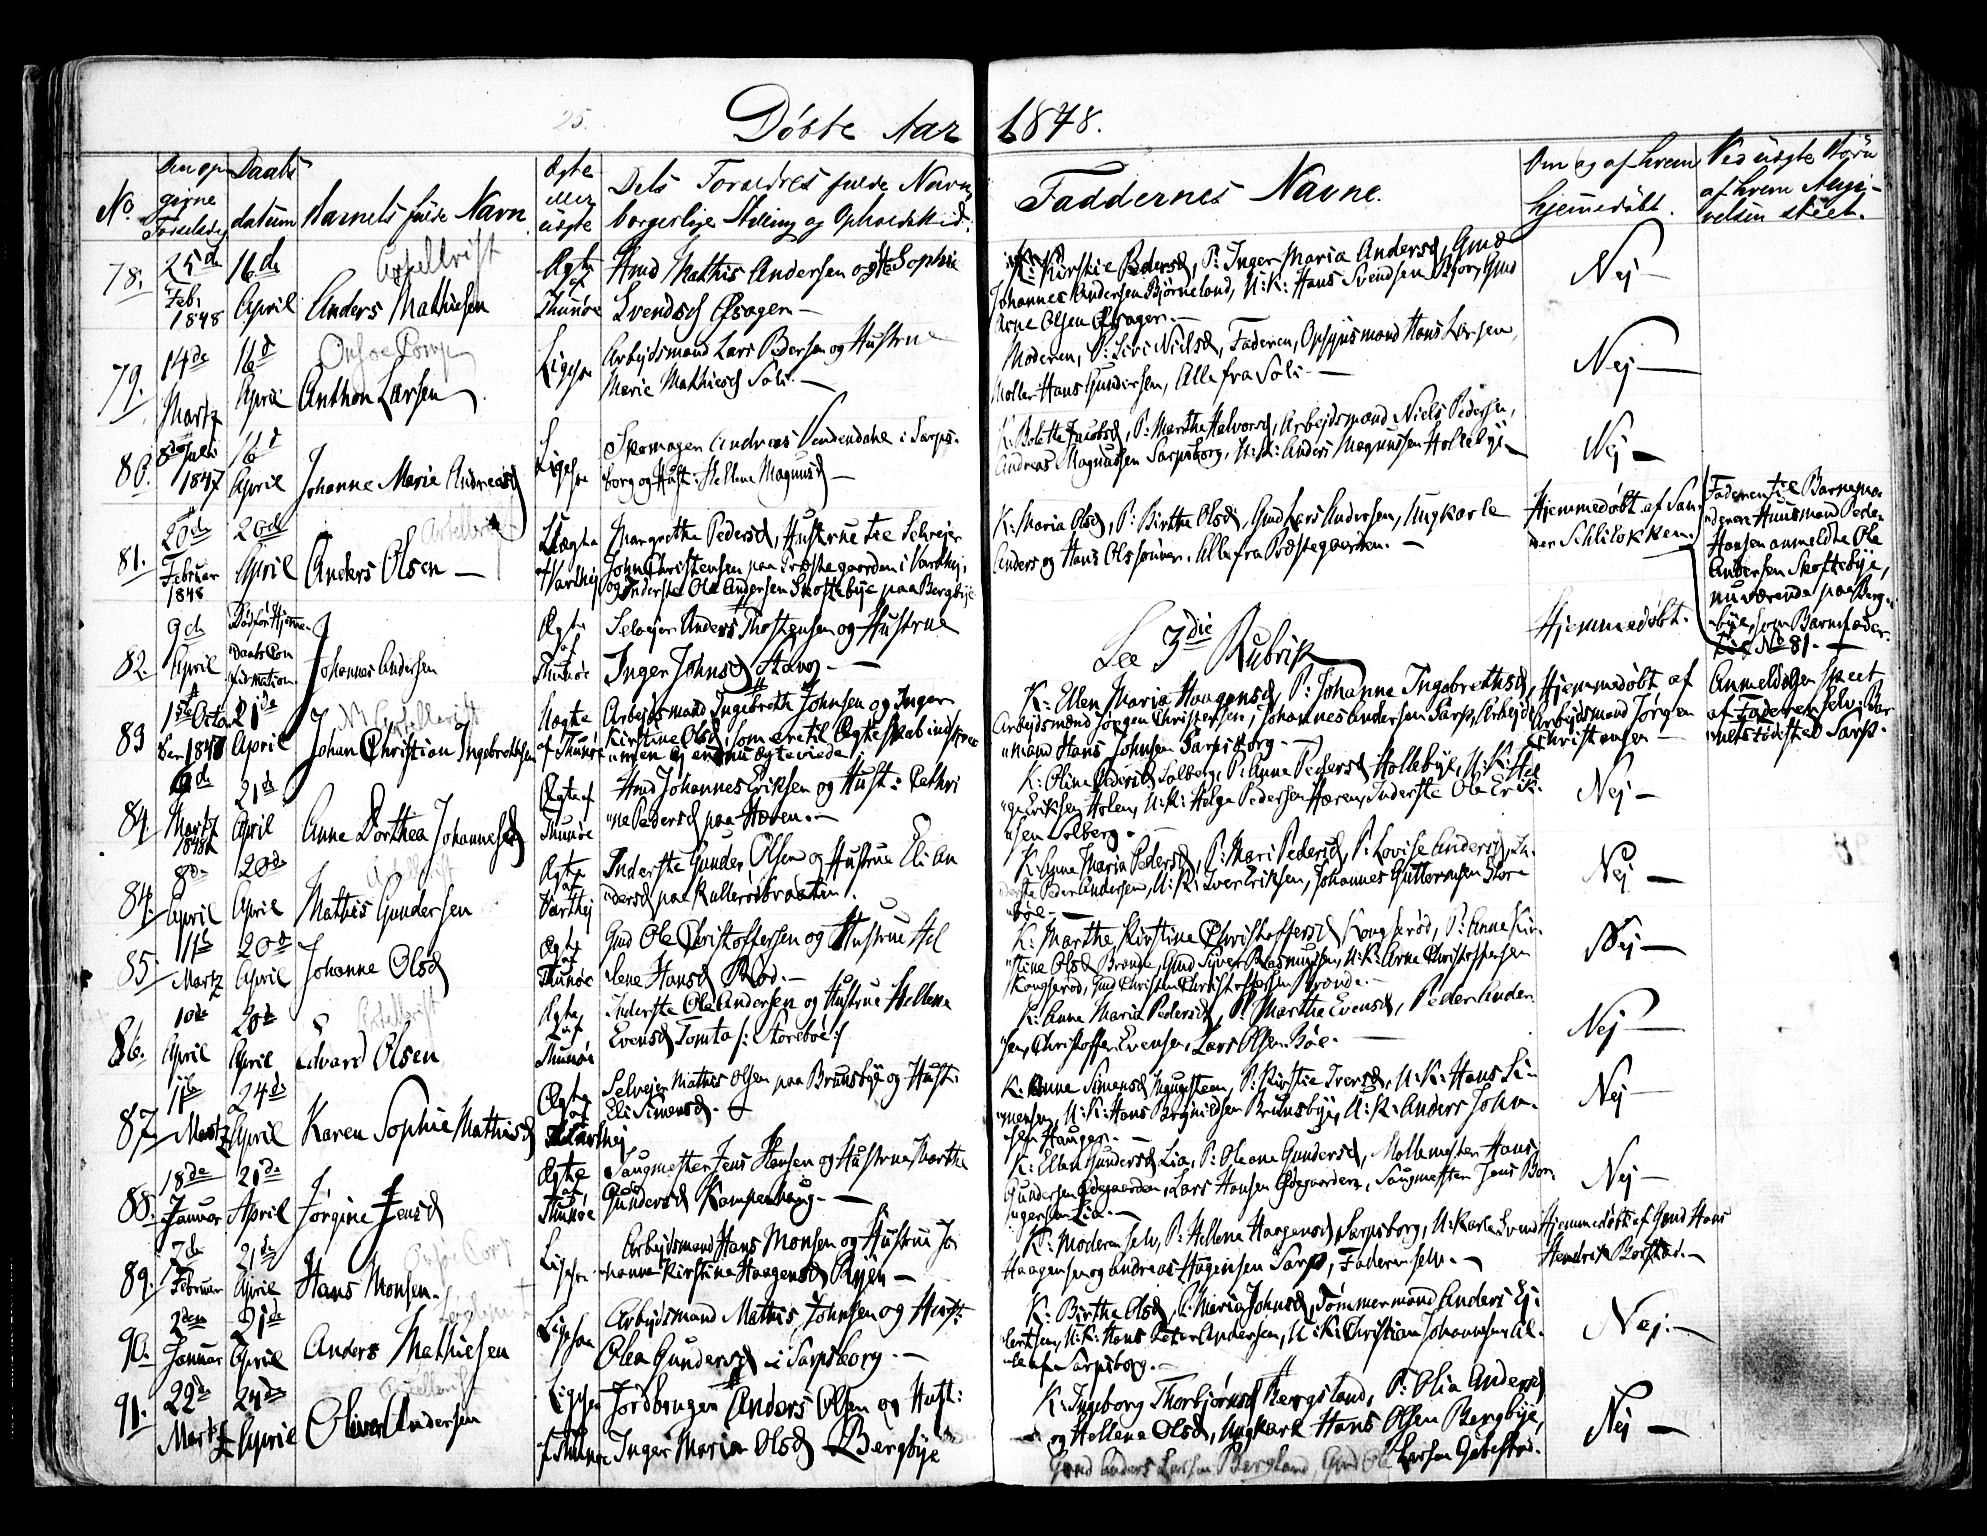 Døbte Aar 1848.
No.
Den opgivne Fødselsdag
Daabsdatum
Barnets fulde Navn
Ægte eller uægte
Dets Forældres fulde Navn,
borgerlige Stilling og Opholdssted.
Faddernes Navne.
Om og af hvem
hjemmedøbt.
Ved uægte Børn
af hvem Angi-
velsen skeet.
78.
25de Feb. 1848
16de April
Anders Mathisen
Ægte af Thunøe
Gmd Mathis Andersen og H. Sophie
Svendsd
K: Kirstie Pedersd, P: Inger Maria Andersd, Gmd
Johannes Andersen Bjørneland, U:K: Hans Svendsen Gmd
Arne Olsen
Nej
79.
14de Martz
16d April
Anthon Larsen
Ligesoe
Arbejdsmand Lars Pedersen og Hustrue
Marie Mathisd Soli.
Moderen, P: Siri Nielsd, Faderen, Opsynsmand Hans Larsen,
Møller Hans Gundersen, Alle fra Soli.
Nej
80.
8de Juli 1847
16d April
Johanne Marie Andreasd
Ligesoe
Skomager Andreas Vendendahl i Sarps-
borg og Hust: Hellene Magnusd
K: Bolette Jacobsd, P: Marthe Halvorsd, Arbejdsmand Niels Pedersen,
Andreas Magnussen Sarpsborg, U:K: Anders Magnussen Hollebye
Nej
81.
20de Februar 1848
20de April
Anders Olsen
Uægte
Varthej
Margrethe Pedersd, Hustrue til Selvejer
John Christensen paa Præstegaarden i Varthej,
og Inderste Ole Andersen Skoftebye paa Bergbye
K: Maria Olsd, P: Birthe Olsd, Gmd Lars Andersen, Ungkarle
Anders og Hans Olssønner. Alle fra Præstegaarden.
Hjemmedøbt af San-
der Schlilokken.
Faderen til Barnemo-
deren Huusmand Peder
Hansen anmeldte Ole
Andersen Skoftebye,
nuværende paa Berg-
bye, som Barnefader
til No 81.
82.
9de April
Død før Hjemme-
Daabs Con
firmation
Johannes Andersen
Ægte af Thunøe
Selvejer Anders Thostensen og Hustrue
Inger Johnsd
See 3die Rubrik
Hjemmedøbt.
83
1ste October 1847
21de April
Johan Christian Ingebrethsen
Uægte af Thunøe
Arbejdsmand Ingebreth Johnsen og Inger
Kirstine Olsd, som ere til Ægteskab indskrev
men ej endnu ægteviede.
K: Ellen Maria Haagensd, P: Johanne Ingebrethsd,
Arbejdsmand Jørgen Christensen, Johannes Andersen Sarp, Arbejds
mand Hans Johnsen Sarpsborg.
Hjemmedøbt af
Arbejdsmand Jørgen
Christensen
Anmeldelsen skeet
af Faderen selv. Bar
nets Fødested Sarp.
84
9de Martz 1848
21de April
Anne Dorthea Johannesd
Ægte af Thunøe
Gmd Johannes Eriksen og Hust: Cathri
ne Pedersd paa Haven.
K: Oline Pedersd Solberg, P: Anne Pedersd Hollebye, U:K: Hel
ge Eriksen Holen, U:K: Helge Pedersen Haven, Inderste Ole Erik-
sen Solberg.
Nej
84.
8de April
20de April
Mathis Gundersen
Ægte af Varthej
Inderste Gunder Olsen og Hustrue Eli An
dersd paa Kullerødbraaten.
K: Anne Maria Pedersd, P: Mari Pedersd, P: Lovise Andersd, In-
derste Peder Andersen, U:K: Iver Eriksen, Johannes Guttormsen Store
bøe.
Nej
85.
11te Martz
20de April
Johanne Olsd
Ægte af Thunøe
Gmd Ole Christoffersen og Hustrue Hel
lene Hansd Rød.
K: Marthe Kirstine Christoffersd Kongsrød, P: Anne Kir-
stine Olsd Brønde, Gmd Syver Rasmussen, U:K: Arne Christoffersen
Kongsrød, Gmd Christen Christoffersen Brønde.
Nej
86.
10de April
20de April
Edvard Olsen
Ægte af Thunøe
Inderste Ole Andersen og Hustrue Hellene
Evensd Tomta /: Storebøe:/
K: Anne Maria Pedersd, P: Marthe Evensd, Peder Ander
sen, Christoffer Evensen, Lars Olsen Bøe.
Nej
87.
11te Martz
24de April
Karen Sophie Mathisd
Ægte af Varthej
Selvejer Mathis Olsen paa Brunsbye og Hust:
Eli Simensd.
K: Anne Simensd, P: Kirstie Iversd, U:K: Hans Si-
mensen, U:K: Hans Brynildsen Brunsbye, U:K: Anders John-
sen Haugen.
Nej
88.
18de Januar
21de April
Jørgine Jensd
Ægte af Thunøe
Saugmester Jens Hansen og Hustrue Marthe
Gundersd Kampenhaug.
K: Ellen Gundersd Lia, P: Oleane Gundersd, Møllemester Hans
Gundersen Ødegaarden, Lars Hansen Ødegaarden, Saugmester Jens Bor
Lia.
Nej
89.
7de Februar
21de April
Hans Monsen.
Ligesoe
Arbejdsmand Hans Monsen og Hustrue Jo
hanne Kirstine Haagensd
K: Moderen selv, P: Hellene Haagensd, Sarpsborg, U:Karle Svend
Haagensen og Andreas Hagensen Sarp, Faderen selv.
Hjemmedøbt af Gmd Hans
Hendrik Borstad.
90.
2den Januar
21de April
Anders Mathisen
Ligesoe
Arbejdsmand Mathis Johnsen og Hust:
Olea Gundersd i Sarpsborg.
K: Birthe Olsd, P: Maria Johnsd, Tømmermand Anders Ej-
lertsen, U:K: Hans Peter Andersen, U:K: Christian Johannesen, Al-
le af Sarpsborg.
Nej.
91.
22de Martz
24de April
Oliver Andersen
Ligesoe
af Thunøe
Jordbruger Anders Olsen og Hust:
Inger Maria Olsd Bergbye
K: Ingeborg Thorbjørnsd Bergsland, P: Olia Andersd
og Hellene Olsd, Ungkarl Hans Olsen Bergbye,
Gmd Anders Larsen Bergland, Gmd Ole Larsen
Nej